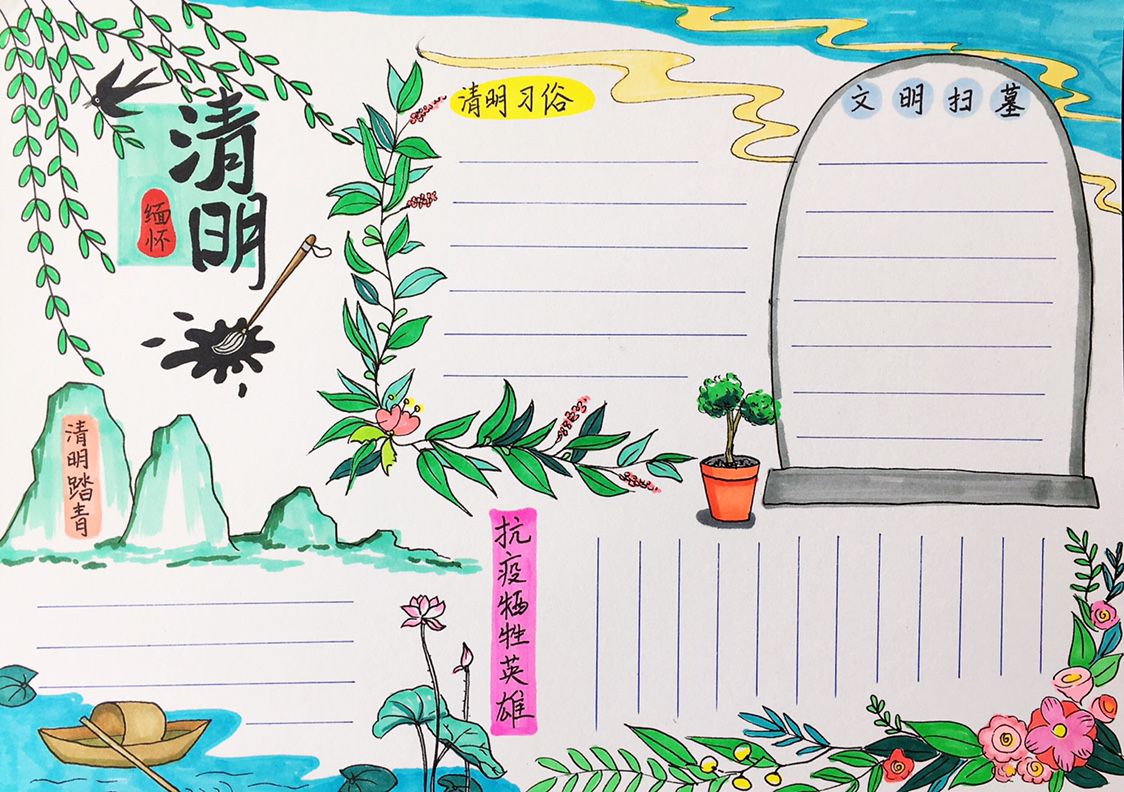 清明
缅怀
清明习俗
文明扫墓
清明踏青
抗疫牺牲英雄